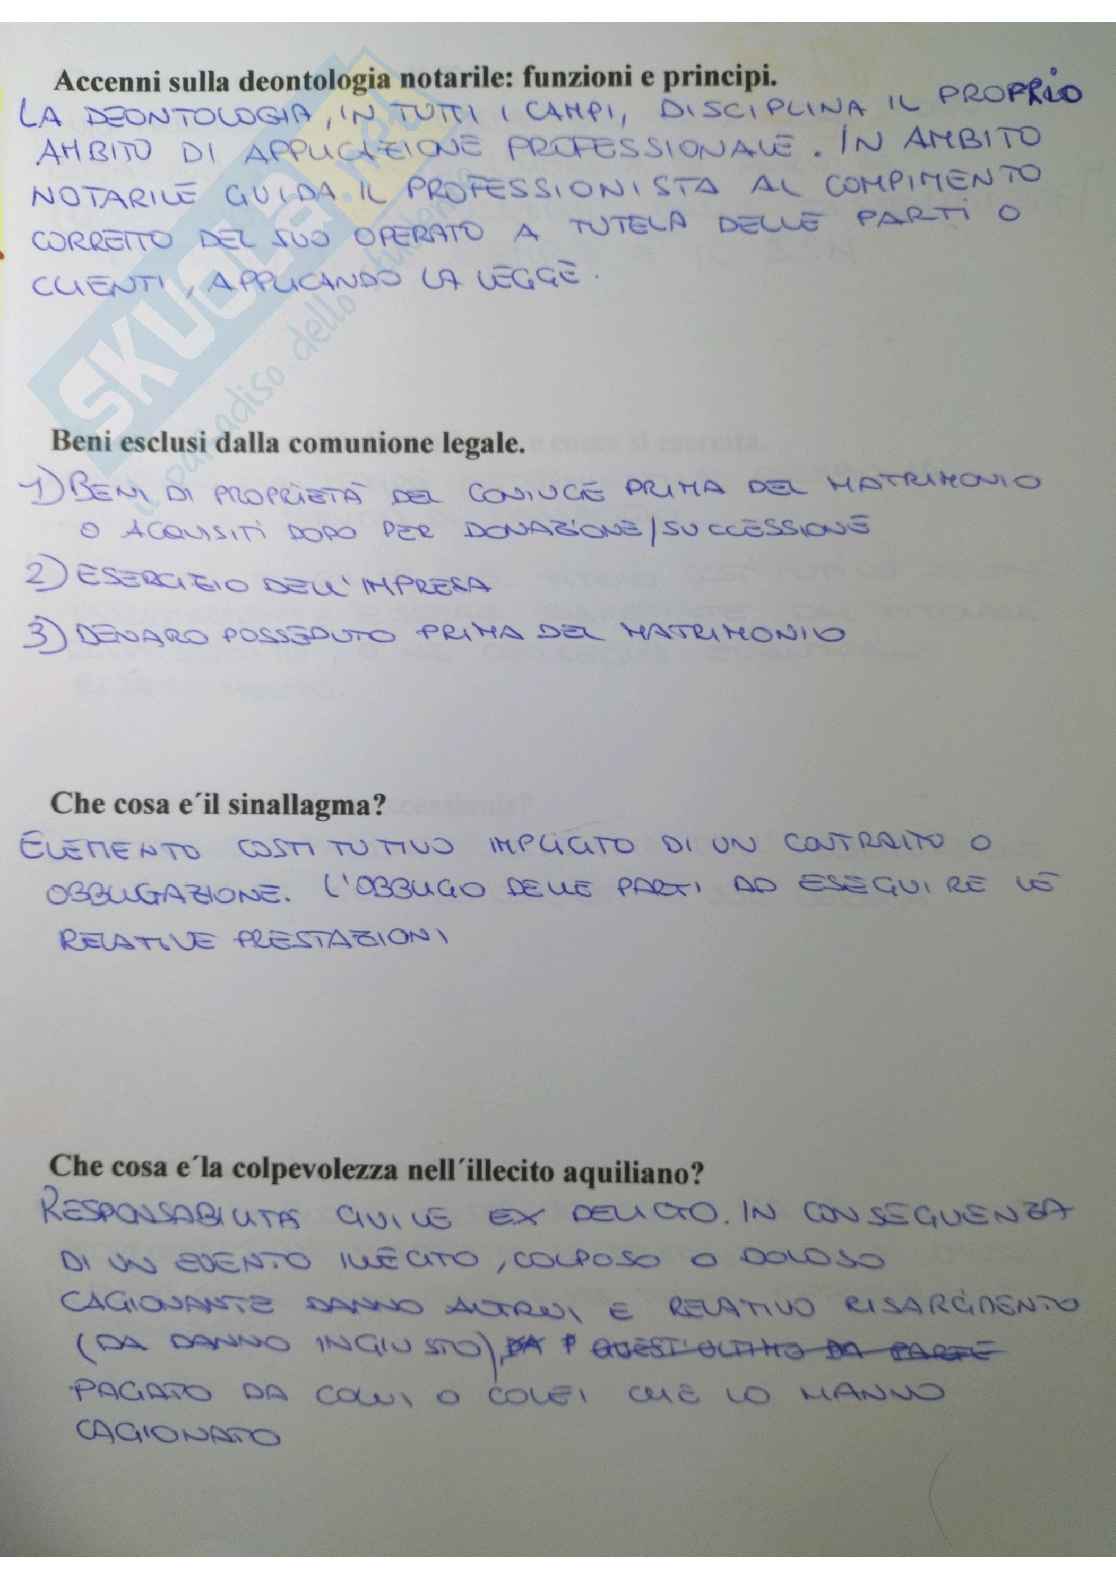 Accenni sulla deontologia notarile: funzioni e principi.
LA DEONTOLOGIA, IN TUTTI I CAMPI, DISCIPLINA IL PROPRIO
AMBITO DI APPLICAZIONE PROFESSIONALE. IN AMBITO
NOTARILE GUIDA IL PROFESSIONISTA AL COMPIMENTO
CORRETTO DEL SUO OPERATO A TUTELA DELLE PARTI O
CLIENTI, APPLICANDO LA LEGGE.
SKUOLA.net
il paradiso dello studente
Beni esclusi dalla comunione legale.
1) BENI DI PROPRIETÀ DEL CONIUGE PRIMA DEL MATRIMONIO
O ACQUISITI DOPO PER DONAZIONE/SUCCESSIONE
2) ESERCIZIO DELL'IMPRESA
3) DENARO POSSEDUTO PRIMA DEL MATRIMONIO
Che cosa e´il sinallagma?
ELEMENTO COSTITUTIVO IMPLICITO DI UN CONTRATTO O
OBBLIGAZIONE. L'OBBLIGO DELLE PARTI AD ESEGUIRE LE
RELATIVE PRESTAZIONI
Che cosa e´la colpevolezza nell´illecito aquiliano?
RESPONSABILITÀ CIVILE EX DELICTO. IN CONSEGUENZA
DI UN EVENTO ILLECITO, COLPOSO O DOLOSO
CAGIONANTE DANNO ALTRUI E RELATIVO RISARCIMENTO
(DA DANNO INGIUSTO), DA P QUEST'ULTIMO DA PARTE
PAGATO DA COLUI O COLEI CHE LO HANNO
CAGIONATO